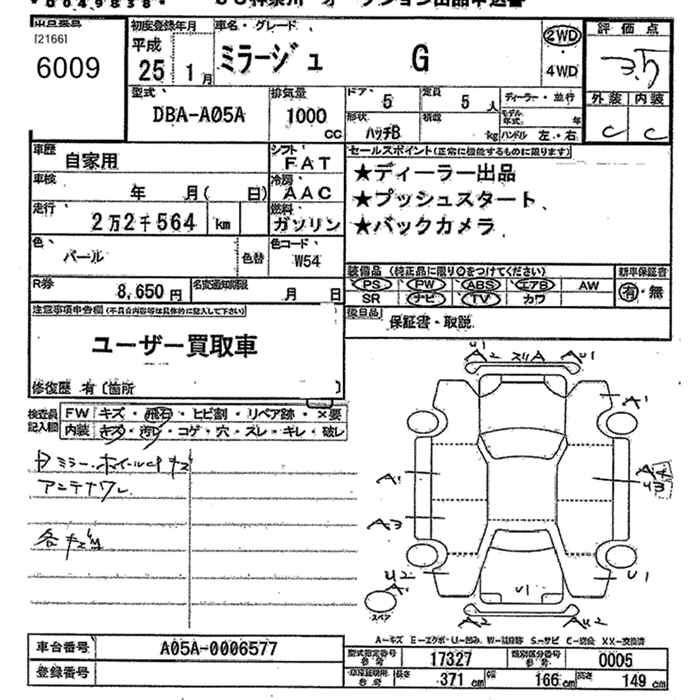 [2166]
6009
初度登録年月
平成
25 1月
車名・グレード
ミラージュ G
2WD
・
4WD
評価点
3.5
外装 内装
C C
型式
DBA-A05A
排気量
1000
cc
ドア 5
定員 5人
ディーラー・並行
形状 ハッチB
積載 kg
モデル年式 年
ハンドル 左・右
車歴
自家用
シフト
FAT
セールスポイント(正常に機能するものに限ります)
★ディーラー出品
★プッシュスタート
★バックカメラ
車検
年 月( 日)
冷房
AAC
走行
2万2千564 km
燃料
ガソリン
色
パール
色替
色コード
W54
装備品 (純正品に限り○をつけてください)
PS PW ABS エアB AW
SR ナビ TV カワ
新車保証書
有・無
R券
8,650円
名変通知期限
月 日
後日品
保証書・取説
注意事項申告欄(不具合内容等は具体的に記入して下さい)
ユーザー買取車
修復歴 有〔箇所 〕
検査員
記入欄
FW キズ・飛石・ヒビ割・リペア跡・×要
内装 キズ・汚れ・コゲ・穴・スレ・キレ・破レ
アンテナ
A2 A U1
A1
A1
A3
U2
U1
U1
スペア
A2 A U2
A-キズ E-エクボ U-凹み W-補修跡 S-サビ C-腐食 XX-交換済
車台番号 A05A-0006577
登録番号
型式指定番号 17327
類別区分番号 0005
長さ 371 cm
幅 166 cm
高さ 149 cm